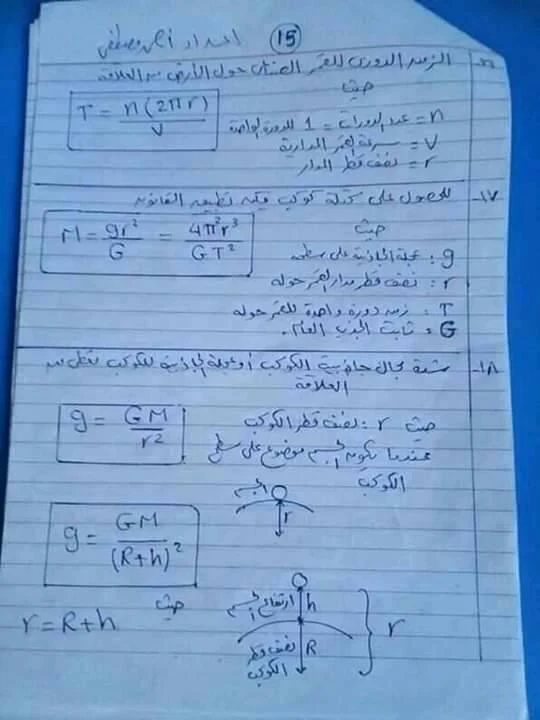 15 اعداد أحمد مصطفى
الزمن الدورى للقمر الصناعى حول الأرض من العلاقة
حيث
T = n(2πr) / V
n = عدد الدورات = 1 للدورة الواحدة
V = سرعة القمر المدارية
r = نصف قطر المدار
١٧- للحصول على كتلة كوكب يمكن تطبيق القانون
حيث
M = gr² / G = 4π²r³ / GT²
g : عجلة الجاذبية على سطحه
r : نصف قطر مدار القمر حوله
T : زمن دورة واحدة للقمر حوله
G : ثابت الجذب العام.
١٨- شدة مجال جاذبية الكوكب أو عجلة الجاذبية للكوكب تعطى من
العلاقة
g = GM / r²
حيث r : نصف قطر الكوكب
عندما يكون الجسم موضوع على سطح
الكوكب
الجسم
r
g = GM / (R+h)²
حيث
r = R+h
ارتفاع الجسم h
نصف قطر الكوكب R
r